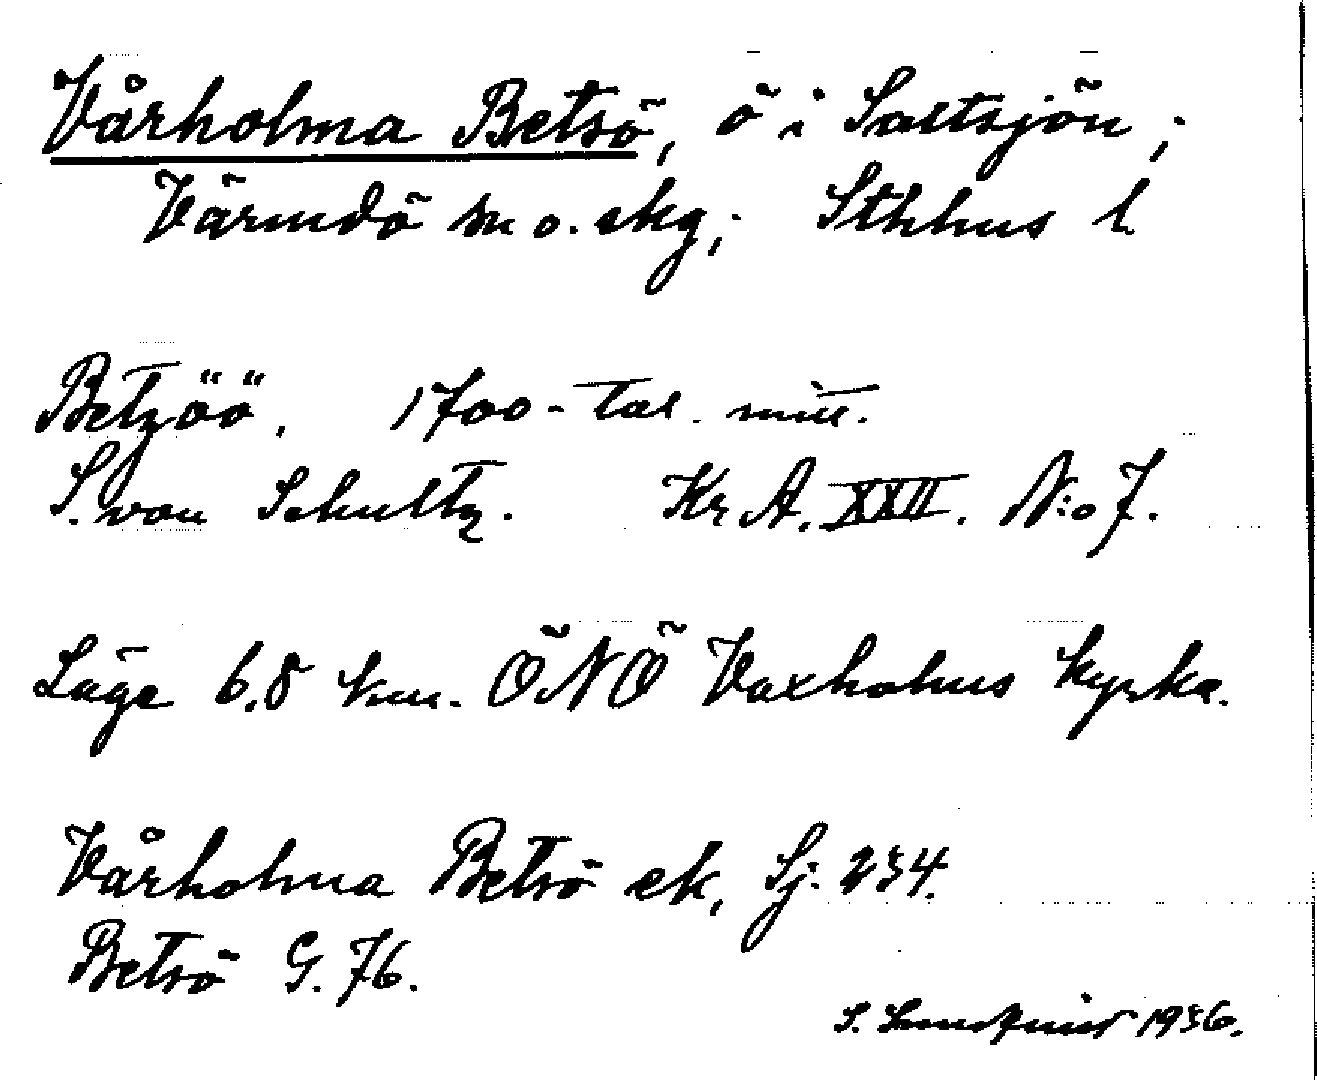 Vårholma Betsö, ö i Saltsjön;
Värmdö sn o. skg; Sthlms l
Betzöö. 1700-tal. mitt.
S. von Schultz. KrA. XXII. N:o 7.
Läge 6.8 km. ÖNÖ Vaxholms kyrka.
Vårholma Betsö ek, Sj. 234.
Betsö G. 76.
S. Lundqvist 1936.